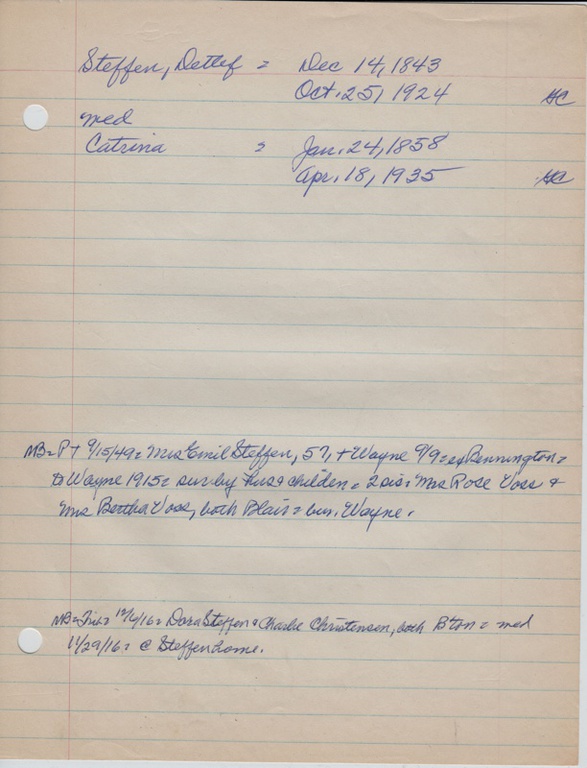 Steffen, Detlef = Dec 14, 1843
Oct. 25, 1924 GC
med
Catrina = Jan. 24, 1858
Apr. 18, 1935 GC
NB = PT 9/15/49 = Mrs Emil Steffen, 57, + Wayne 9/9 = Bennington =
to Wayne 1915 = sur by hus & childen = 2 sis = Mrs Rose Voss &
Mrs Bertha Voss, both Blair = bur. Wayne.
NB = Trib = 12/6/16 = Dora Steffen & Charlie Christensen, both B'ton = med
11/29/16 = @ Steffen home.